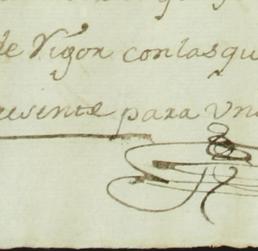 de Vigor con las qu
resente para una